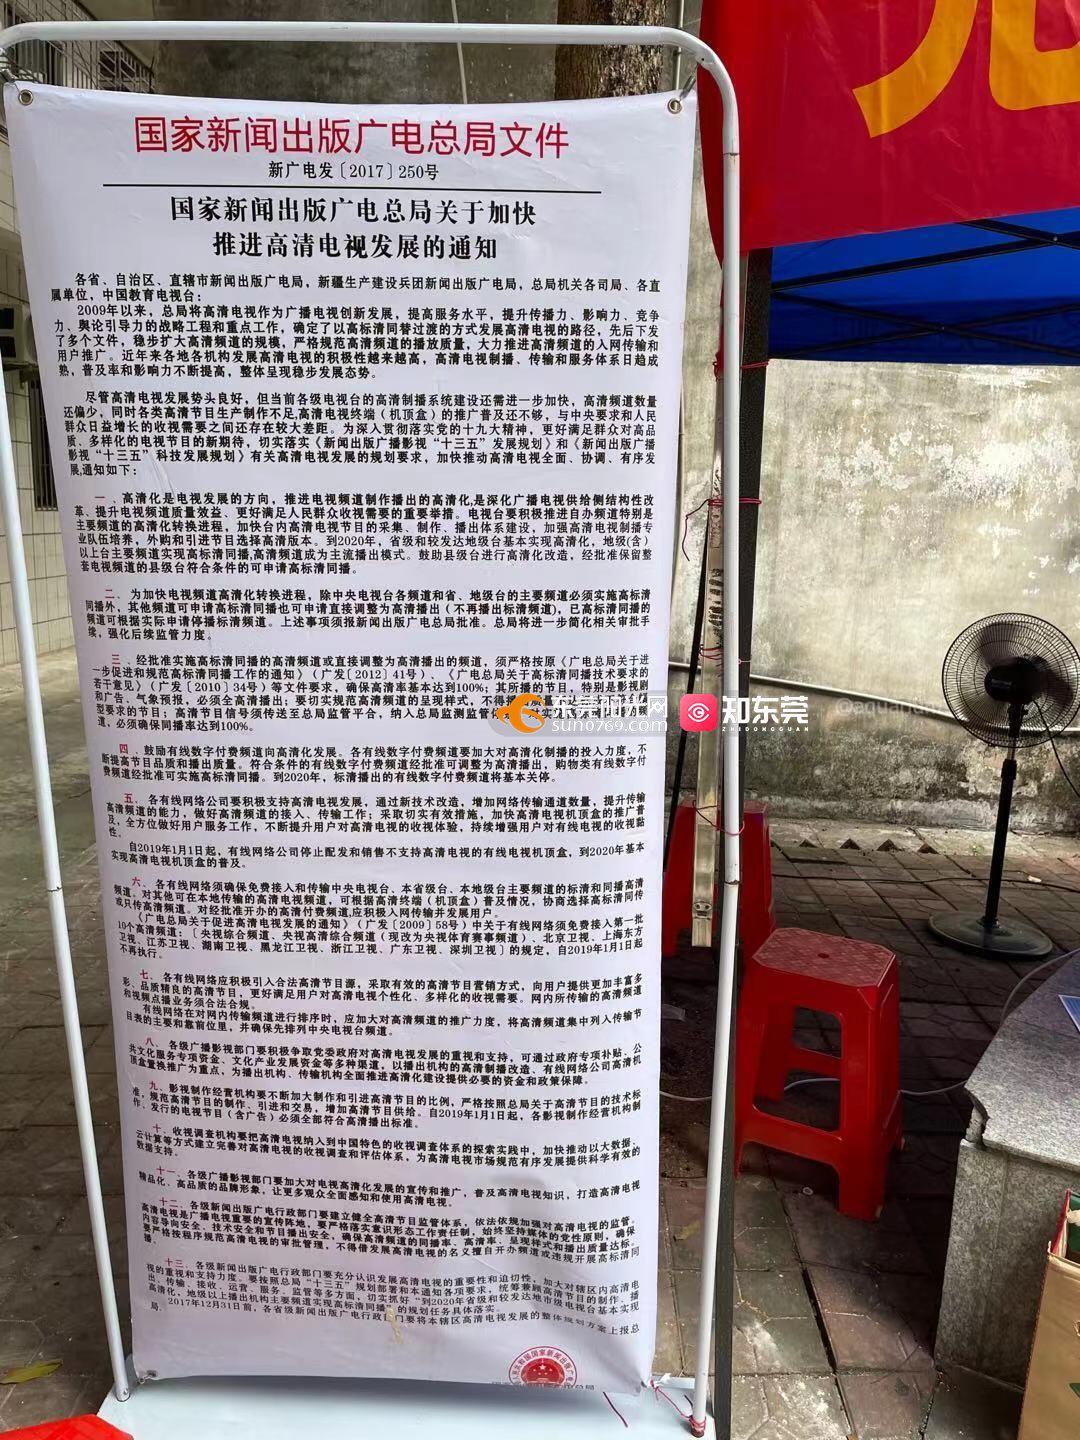 国家新闻出版广电总局文件
新广电发〔2017〕250号
国家新闻出版广电总局关于加快
推进高清电视发展的通知
各省、自治区、直辖市新闻出版广电局，新疆生产建设兵团新闻出版广电局，总局机关各司局、各直
属单位，中国教育电视台：
2009年以来，总局将高清电视作为广播电视创新发展，提高服务水平，提升传播力、影响力、竞争
力、舆论引导力的战略工程和重点工作，确定了以高标清同替过渡的方式发展高清电视的路径，先后下发
了多个文件，稳步扩大高清频道的规模，严格规范高清频道的播放质量，大力推进高清频道的入网传输和
用户推广。近年来各地各机构发展高清电视的积极性越来越高，高清电视制播、传输和服务体系日趋成
熟，普及率和影响力不断提高，整体呈现稳步发展态势。
尽管高清电视发展势头良好，但当前各级电视台的高清制播系统建设还需进一步加快，高清频道数量
还偏少，同时各类高清节目生产制作不足,高清电视终端（机顶盒）的推广普及还不够，与中央要求和人民
群众日益增长的收视需要之间还存在较大差距。为深入贯彻落实党的十九大精神，更好满足群众对高品
质、多样化的电视节目的新期待，切实落实《新闻出版广播影视“十三五”发展规划》和《新闻出版广播
影视“十三五”科技发展规划》有关高清电视发展的规划要求，加快推动高清电视全面、协调、有序发
展,通知如下：
一、高清化是电视发展的方向，推进电视频道制作播出的高清化,是深化广播电视供给侧结构性改
革、提升电视频道质量效益、更好满足人民群众收视需要的重要举措。电视台要积极推进自办频道特别是
主要频道的高清化转换进程，加快台内高清电视节目的采集、制作、播出体系建设，加强高清电视制播专
业队伍培养，外购和引进节目选择高清版本。到2020年，省级和较发达地级台基本实现高清化，地级(含)
以上台主要频道实现高标清同播,高清频道成为主流播出模式。鼓励县级台进行高清化改造，经批准保留整
套电视频道的县级台符合条件的可申请高标清同播。
二、为加快电视频道高清化转换进程，除中央电视台各频道和省、地级台的主要频道必须实施高标清
同播外，其他频道可申请高标清同播也可申请直接调整为高清播出（不再播出标清频道)，已高标清同播的
频道可根据实际申请停播标清频道。上述事项须报新闻出版广电总局批准。总局将进一步简化相关审批手
续，强化后续监管力度。
三、经批准实施高标清同播的高清频道或直接调整为高清播出的频道，须严格按原《广电总局关于进
一步促进和规范高标清同播工作的通知》（广发[2012]41号）、《广电总局关于高标清同播技术要求的
若干意见》（广发〔2010〕34号）等文件要求，确保高清率基本达到100%；其所播的节目，特别是影视剧
和广告、气象预报，必须全高清播出；要切实规范高清频道的呈现样式，不得
型要求的节目；高清节目信号须传送至总局监管平台，纳入总局监测监管
道，必须确保同播率达到100%。
四、鼓励有线数字付费频道向高清化发展。各有线数字付费频道要加大对高清化制播的投入力度，不
断提高节目品质和播出质量。符合条件的有线数字付费频道经批准可调整为高清播出，购物类有线数字付
费频道经批准可实施高标清同播。到2020年，标清播出的有线数字付费频道将基本关停。
五、各有线网络公司要积极支持高清电视发展，通过新技术改造，增加网络传输通道数量，提升传输
高清频道的能力，做好高清频道的接入、传输工作；采取切实有效措施，加快高清电视机顶盒的推广普
及，全方位做好用户服务工作，不断提升用户对高清电视的收视体验，持续增强用户对有线电视的收视黏
性。
自2019年1月1日起，有线网络公司停止配发和销售不支持高清电视的有线电视机顶盒，到2020年基本
实现高清电视机顶盒的普及。
六、各有线网络须确保免费接入和传输中央电视台、本省级台、本地级台主要频道的标清和同播高清
频道。对其他可在本地传输的高清电视频道，可根据高清终端（机顶盒）普及情况，协商选择高标清同传
或只传高清频道。对经批准开办的高清付费频道,应积极入网传输并发展用户。
《广电总局关于促进高清电视发展的通知》（广发〔2009〕58号）中关于有线网络须免费接入第一批
10个高清频道：〔央视综合频道、央视高清综合频道（现改为央视体育赛事频道）、北京卫视、上海东方
卫视、江苏卫视、湖南卫视、黑龙江卫视、浙江卫视、广东卫视、深圳卫视〕的规定，自2019年1月1日起
不再执行。
七、各有线网络应积极引入合法高清节目源，采取有效的高清节目营销方式，向用户提供更加丰富多
彩、品质精良的高清节目，更好满足用户对高清电视个性化、多样化的收视需要。网内所传输的高清频道
和视频点播业务须合法合规。
有线网络在对网内传输频道进行排序时，应加大对高清频道的推广力度，将高清频道集中列入传输节
目表的主要和靠前位里，并确保先排列中央电视台频道。
八、各级广播影视部门要积极争取党委政府对高清电视发展的重视和支持，可通过政府专项补贴、公
共文化服务专项资金、文化产业发展资金等多种渠道，以播出机构的高清制播改造、有线网络公司高清机
顶盒置换推广为重点，为播出机构、传输机构全面推进高清化建设提供必要的资金和政策保障。
九、影视制作经营机构要不断加大制作和引进高清节目的比例，严格按照总局关于高清节目的技术标
准，规范高清节目的制作、引进和交易，增加高清节目供给。自2019年1月1日起，各影视制作经营机构制
作、发行的电视节目（含广告）必须全部符合高清播出标准。
十、收视调查机构要把高清电视纳入到中国特色的收视调查体系的探索实践中，加快推动以大数据、
云计算等方式建立完善对高清电视的收视调查和评估体系，为高清电视市场规范有序发展提供科学有效的
数据支持。
十一、各级广播影视部门要加大对电视高清化发展的宣传和推广，普及高清电视知识，打造高清电视
精品化、高品质的品牌形象，让更多观众全面感知和使用高清电视。
十二、各级新闻出版广电行政部门要建立健全高清节目监管体系，依法依规加强对高清电视的监管。
高清电视是广播电视重要的宣传阵地，要严格落实意识形态工作责任制，始终坚持媒体的党性原则，确保
内容导向安全、技术安全和节目播出安全，确保高清频道的同播率、高清率、呈现样式和播出质量达标。
要严格按程序规范高清电视的审批管理，不得借发展高清电视的名义擅自开办频道或违规开展高标清同
播。
十三、各级新闻出版广电行政部门要充分认识发展高清电视的重要性和迫切性，加大对辖区内高清电
视的重视和支持力度。要按照总局“十三五”规划部署和本通知各项要求，统筹兼顾高清节目的制作、播
出、传输、接收、运营、服务、监管等多方面，切实抓好“到2020年省级和较发达地市级电视台基本实现
高清化，地级以上播出机构主要频道实现高标清同播”的规划任务具体落实。
2017年12月31日前，各省级新闻出版广电行政部门要将本辖区高清电视发展的整体规划方案上报总
局。
sun0769.com
知东莞
ZHEDONGGUAN